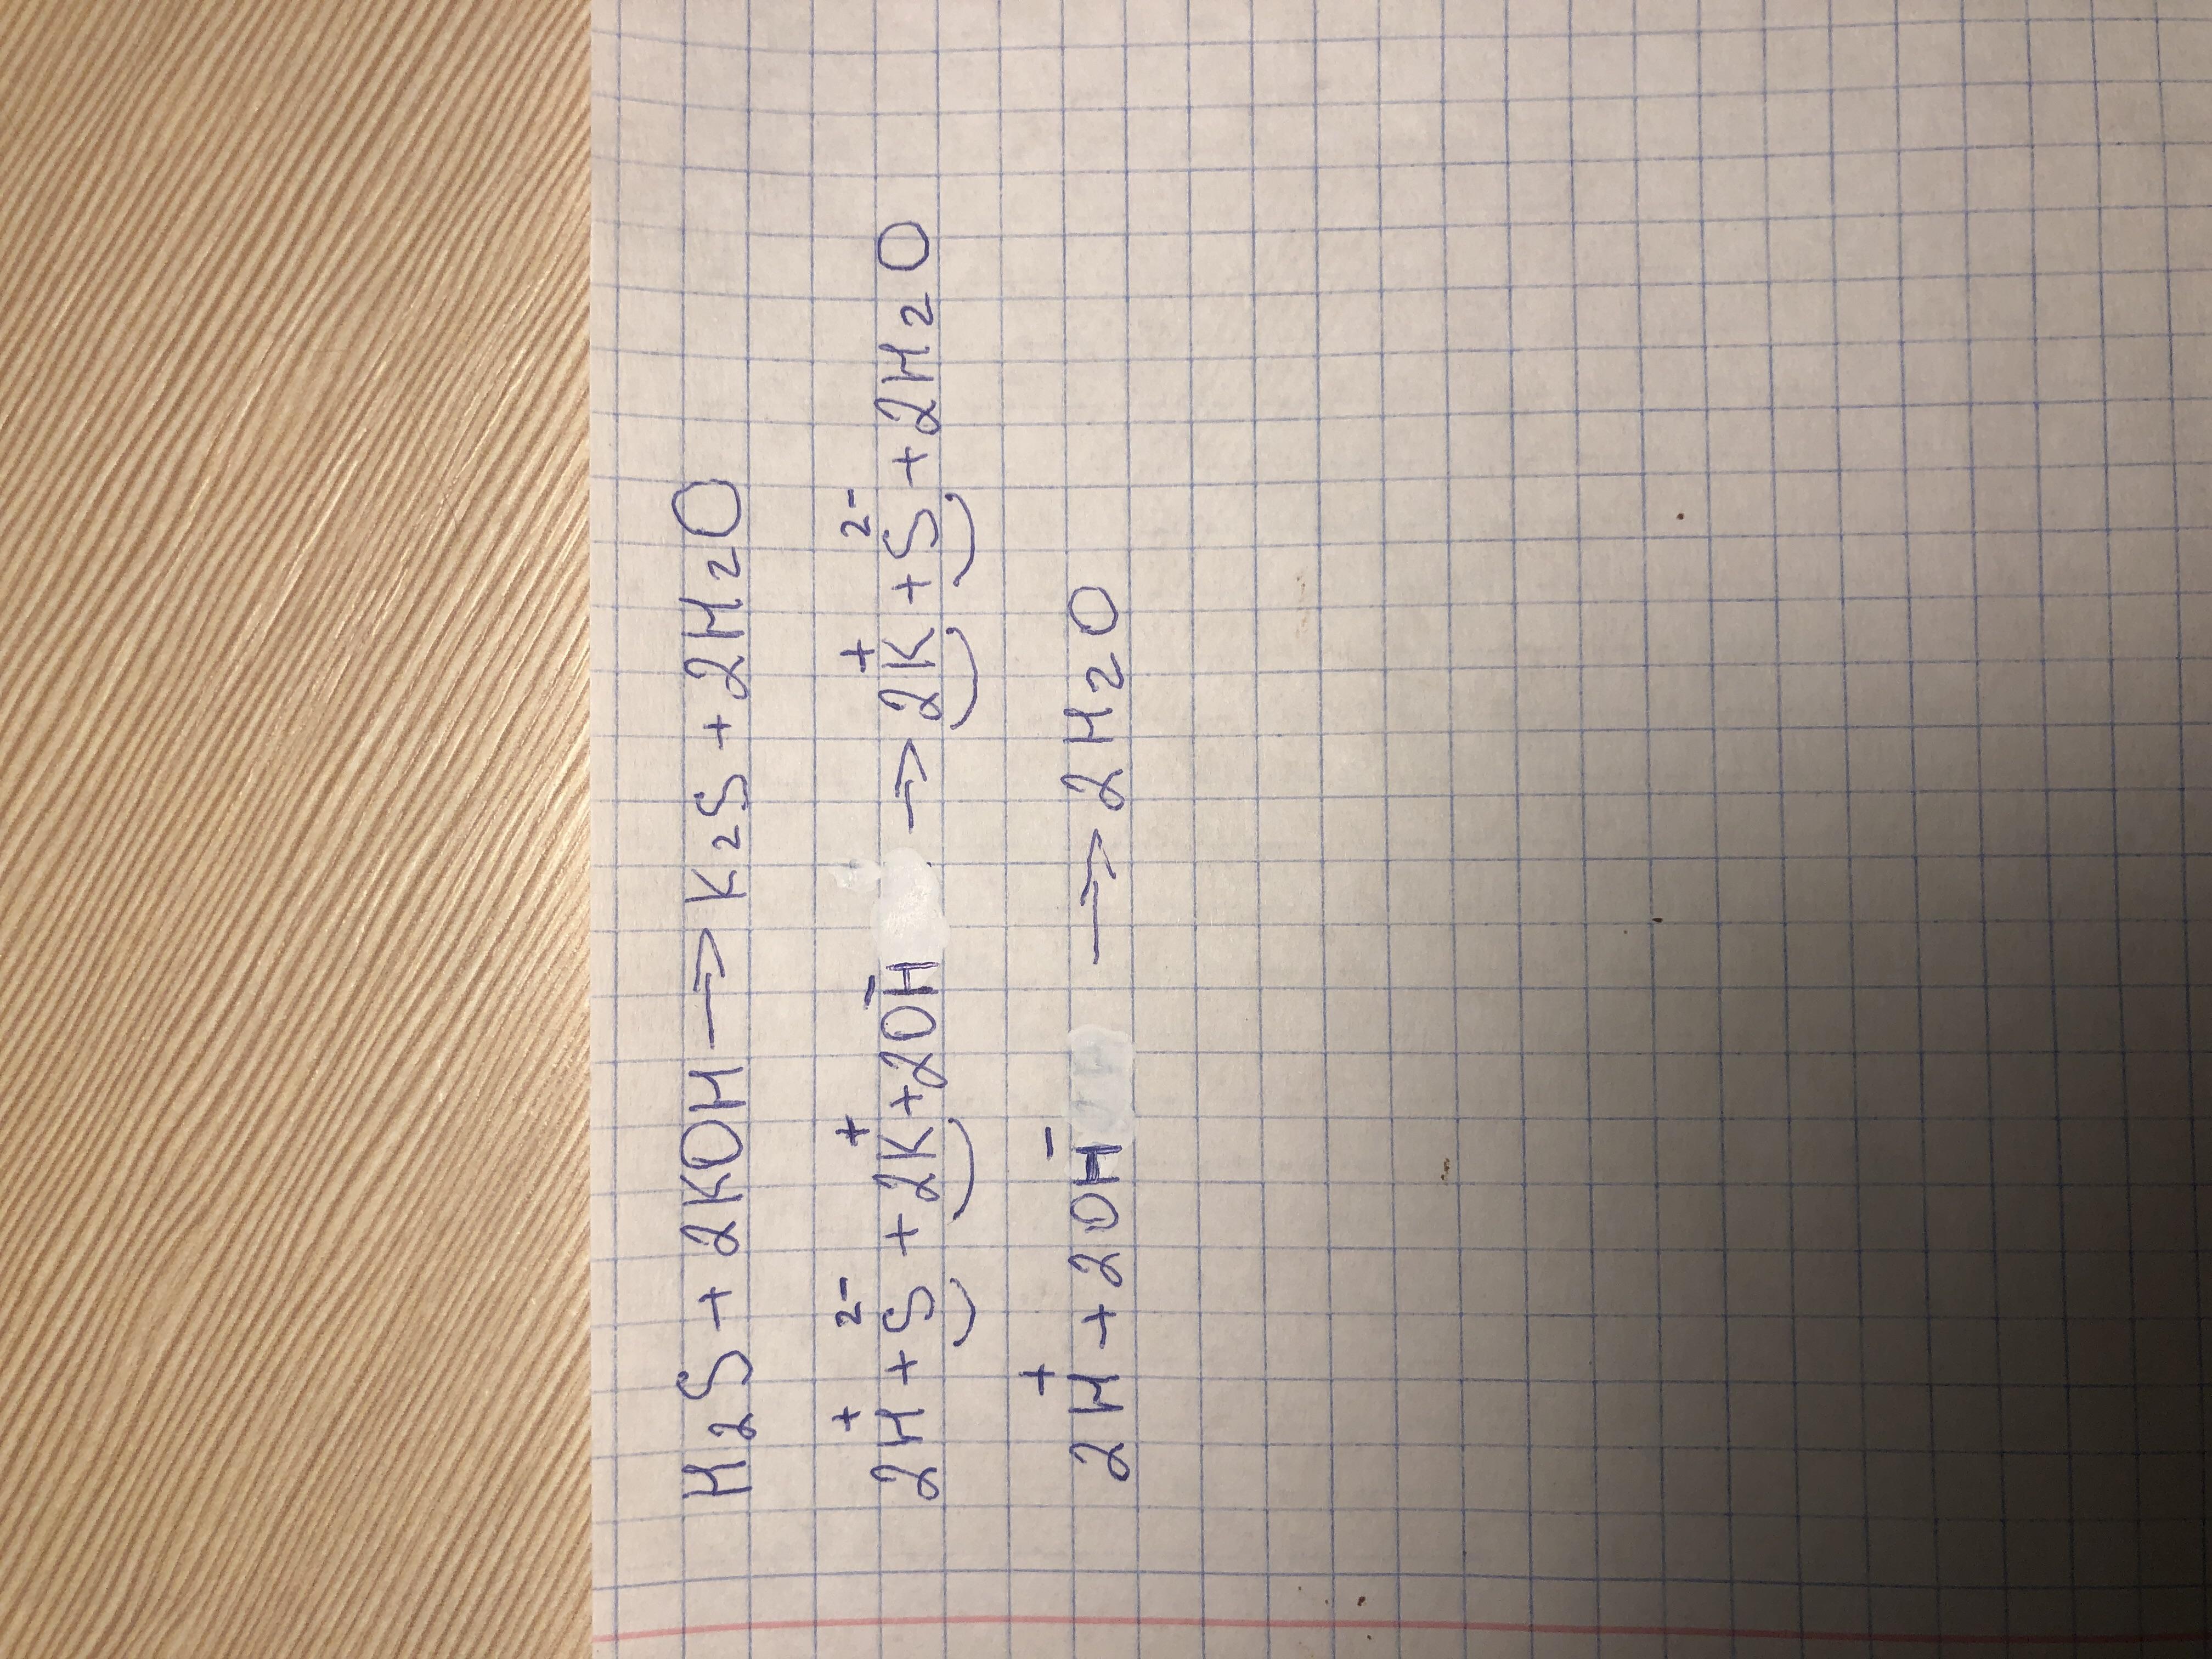 H₂S + 2KOH → K₂S + 2H₂O
2H⁺ + S²⁻ + 2K⁺ + 2OH⁻ → 2K⁺ + S²⁻ + 2H₂O
2H⁺ + 2OH⁻ → 2H₂O